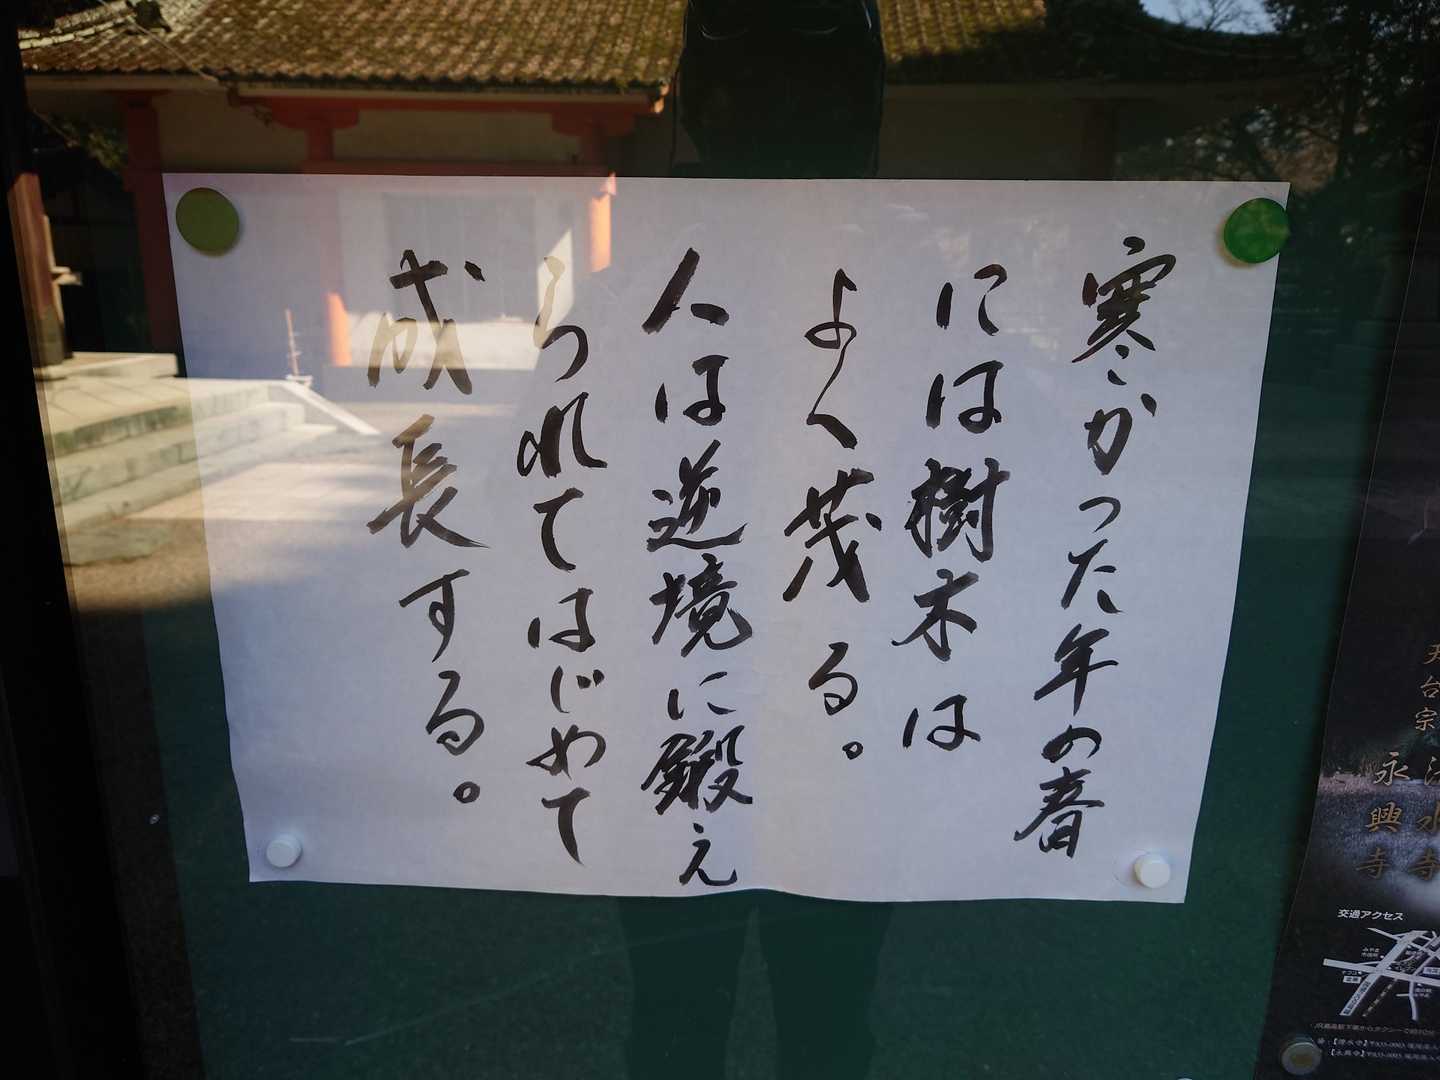 寒かった年の春
には樹木は
よく茂る。
人は逆境に鍛え
られてはじめて
成長する。
天台宗
永興寺
交通アクセス